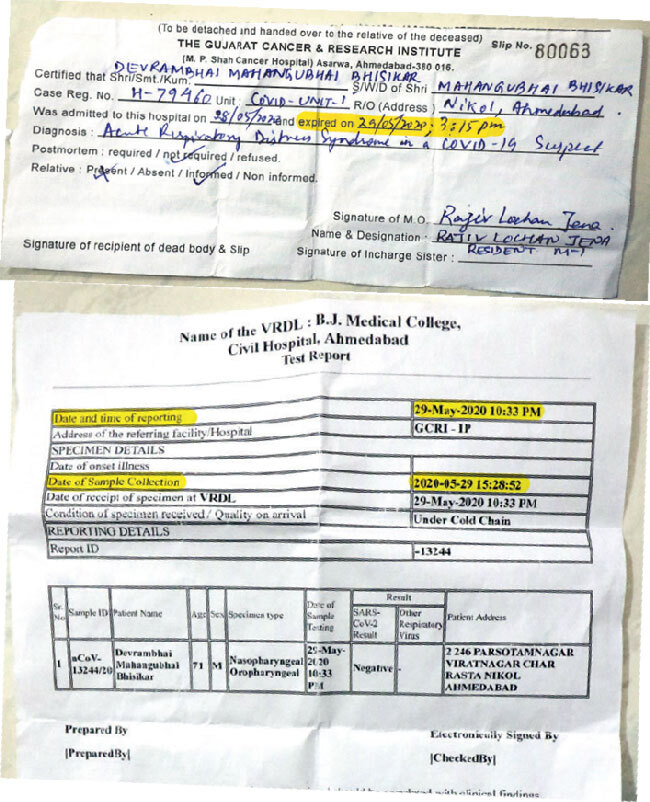 (To be detached and handed over to the relative of the deceased)
THE GUJARAT CANCER & RESEARCH INSTITUTE Slip No. 80063
(M. P. Shah Cancer Hospital) Asarwa, Ahmedabad-380 016.
DEVRAMBHAI MAHANGUBHAI BHISIKAR
Certified that Shri/Smt./Kum. S/W/D of Shri MAHANGUBHAI BHISIKAR
Case Reg. No. H-79460 Unit : COVID-UNIT-1 R/O (Address) Nikol, Ahmedabad.
Was admitted to this hospital on 28/05/2020 and expired on 29/05/2020, 3:15pm
Diagnosis : Acute Respiratory Distress Syndrome in a COVID-19 Suspect
Postmortem : required / not required / refused.
Relative : Present / Absent / Informed / Non informed.
Signature of M.O. Rajiv Lochan Jena.
Name & Designation : RAJIV LOCHAN JENA
RESIDENT M-1
Signature of recipient of dead body & Slip Signature of Incharge Sister :
Name of the VRDL : B.J. Medical College,
Civil Hospital, Ahmedabad
Test Report
Date and time of reporting 29-May-2020 10:33 PM
Address of the referring facility/Hospital GCRI - IP
SPECIMEN DETAILS
Date of onset illness
Date of Sample Collection 2020-05-29 15:28:52
Date of receipt of specimen at VRDL 29-May-2020 10:33 PM
Condition of specimen received/ Quality on arrival Under Cold Chain
REPORTING DETAILS
Report ID -13244
Sr. No Sample ID Patient Name Age Sex Specimen type Date of Sample Testing Result SARS-CoV-2 Result Other Respiratory Virus Patient Address
1 nCoV-13244/20 Devrambhai Mahangubhai Bhisikar 71 M Nasopharyngeal Oropharyngeal 29-May-2020 10:33 PM Negative - 2 246 PARSOTAMNAGAR VIRATNAGAR CHAR RASTA NIKOL AHMEDABAD
Prepared By Electronically Signed By
|PreparedBy| |CheckedBy|
with clinical findings